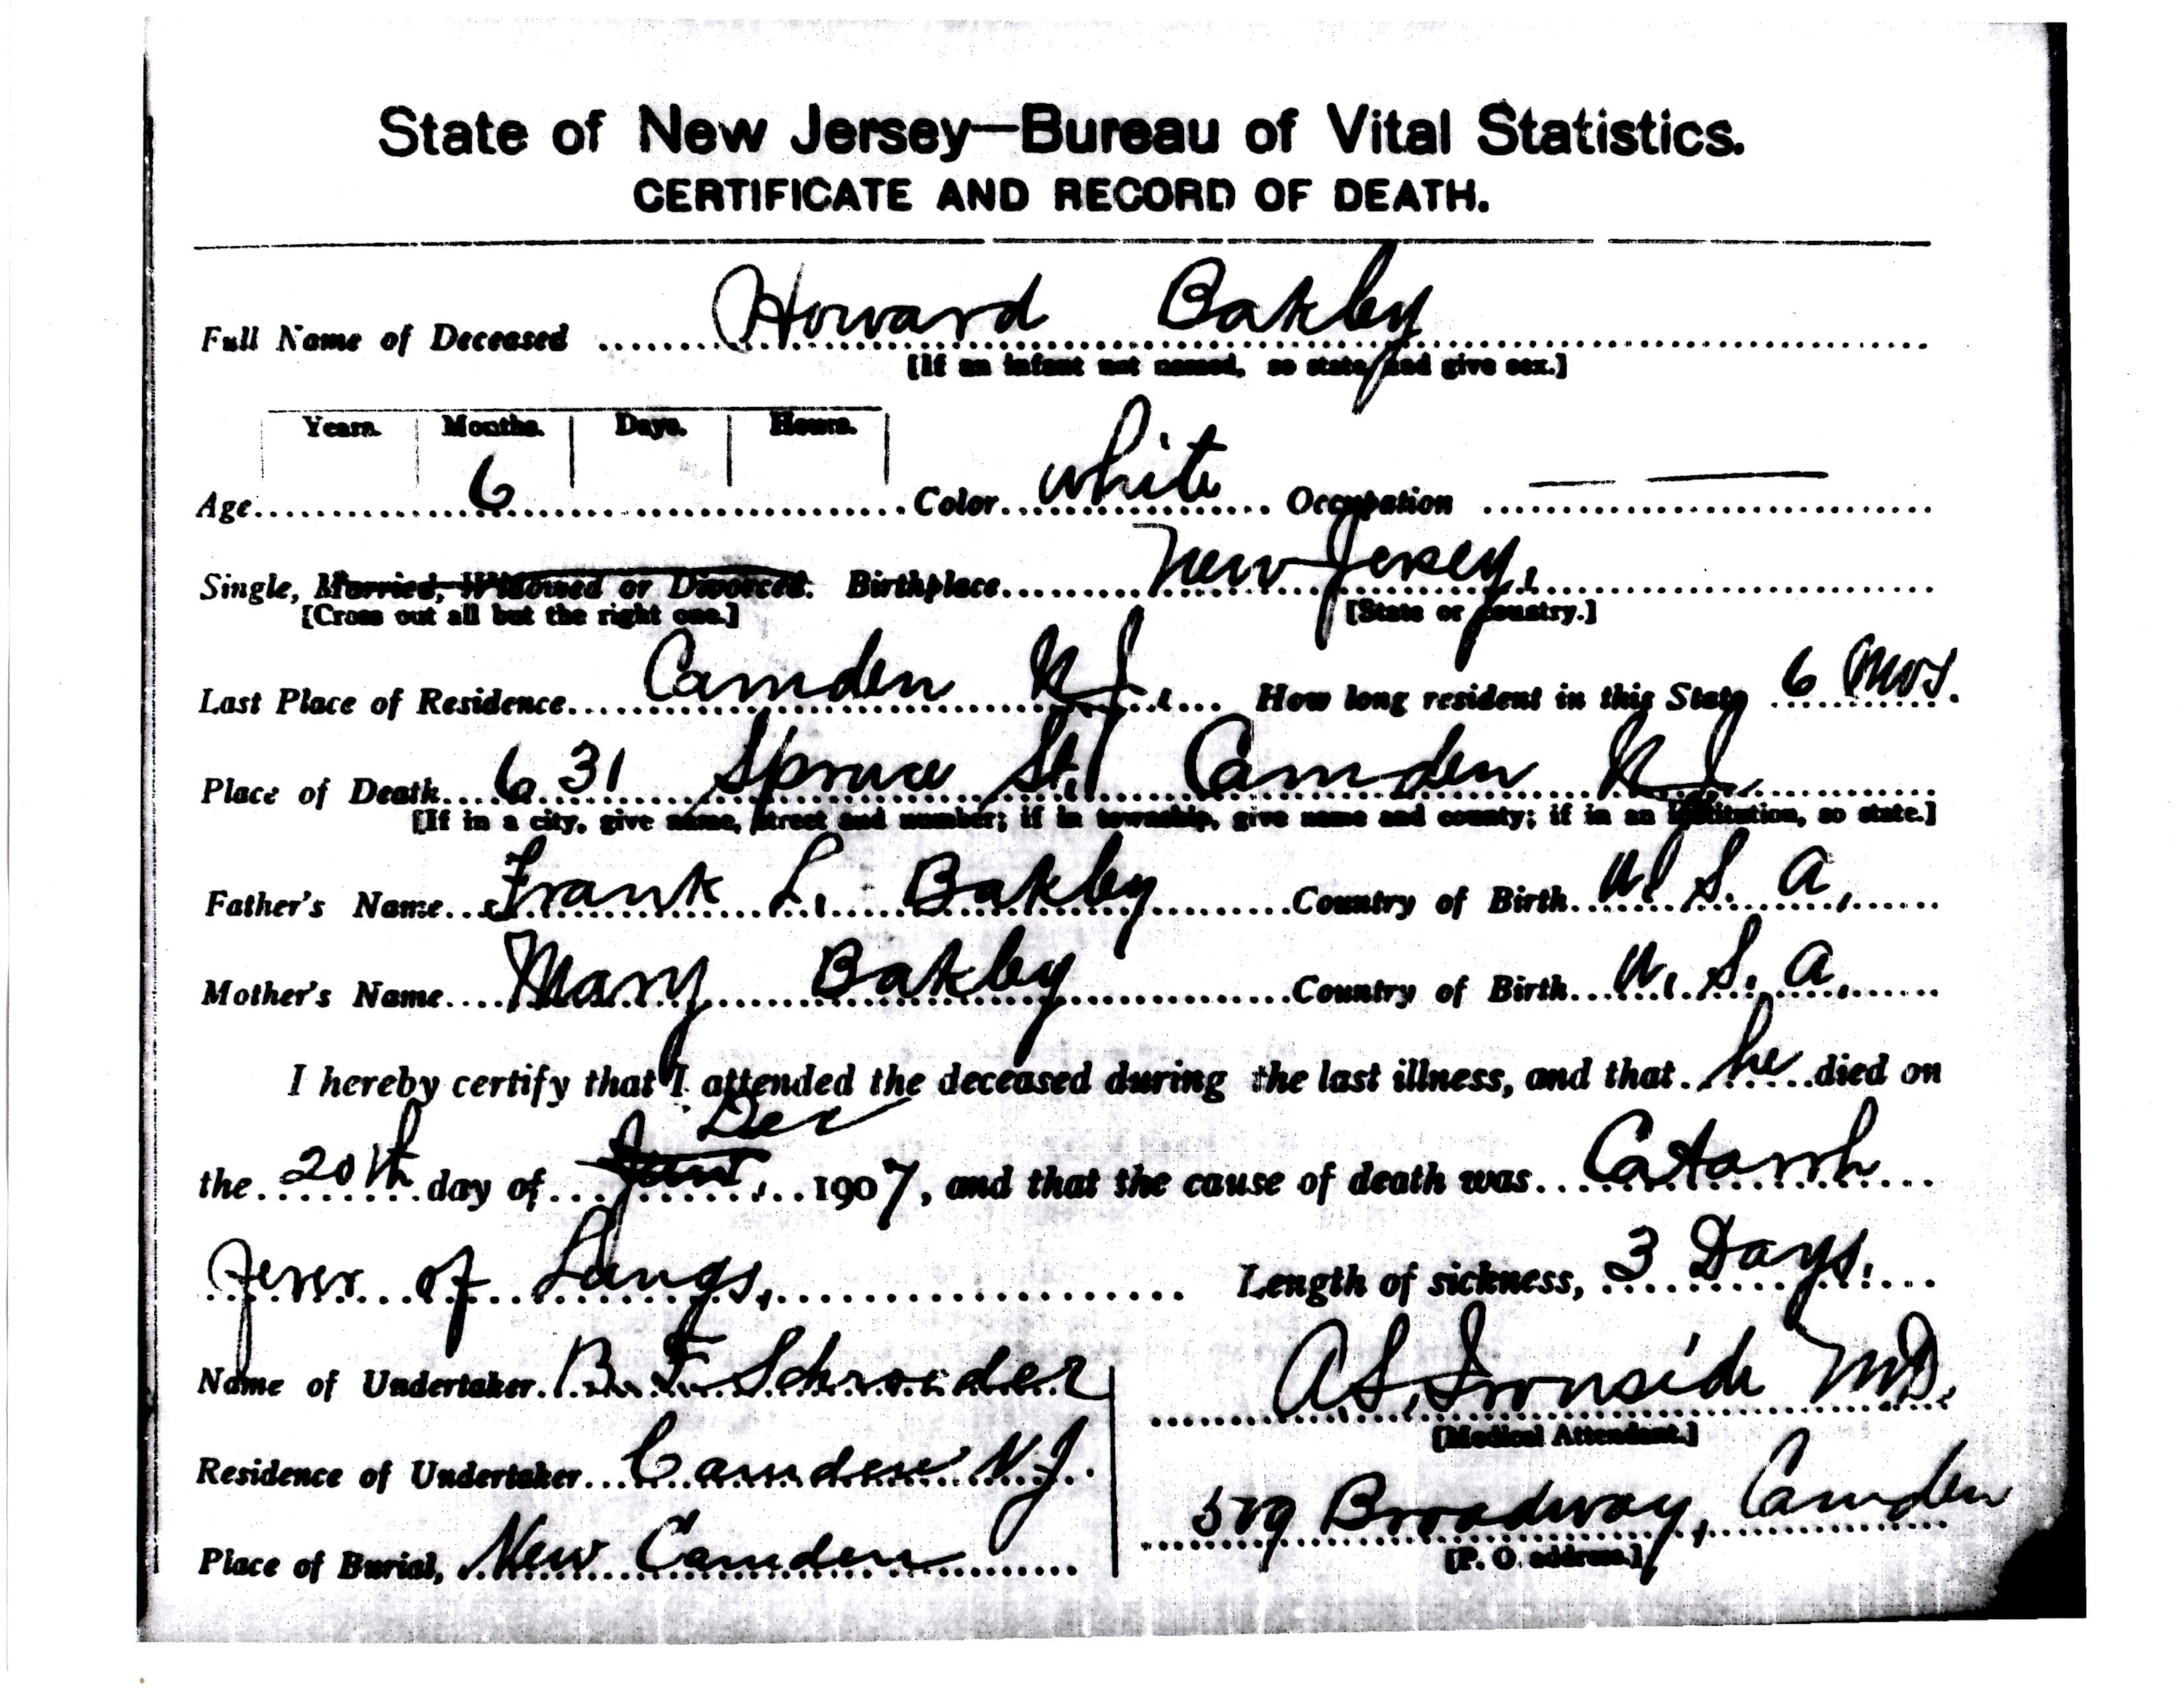 State of New Jersey—Bureau of Vital Statistics.
CERTIFICATE AND RECORD OF DEATH.
Full Name of Deceased Howard Bakley
[If an infant not named, so state, and give sex.]
Years. Months. Days. Hours.
Age 6 Color White Occupation —
Single, Married, Widowed or Divorced. Birthplace New Jersey.
[Cross out all but the right one.] [State or country.]
Last Place of Residence Camden N J. How long resident in this State 6 Mos.
Place of Death 631 Spruce St. Camden N J.
[If in a city, give name, street and number; if in township, give name and county; if in an institution, so state.]
Father's Name Frank L. Bakley Country of Birth U. S. A.
Mother's Name Mary Bakley Country of Birth U. S. A.
I hereby certify that I attended the deceased during the last illness, and that he died on
Dec
the 20th day of 1907, and that the cause of death was Catarrh
Fever of Lungs. Length of sickness, 3 Days.
Name of Undertaker B. F. Schroeder A S. Ironside MD.
[Medical Attendant.]
Residence of Undertaker Camden N.J.
Broadway, Camden
Place of Burial, New Camden [P. O. address.]